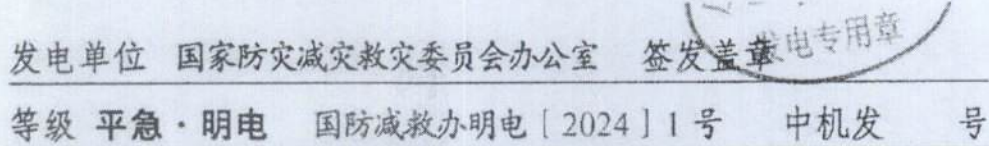 发电专用章
发电单位 国家防灾减灾救灾委员会办公室 签发盖章
等级 平急·明电 国防减救办明电[2024]1号 中机发 号